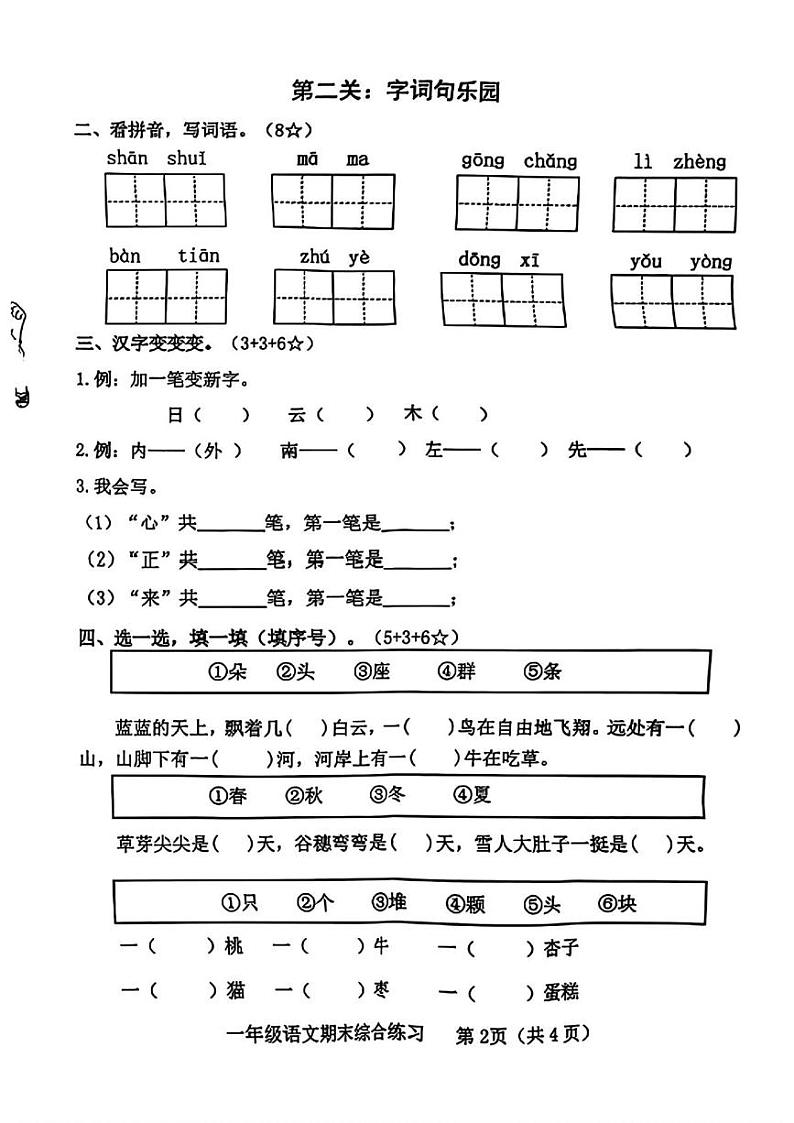 第二关：字词句乐园
二、看拼音，写词语。（8☆）
shān shuǐ mā ma gōng chǎng lì zhèng
bàn tiān zhú yè dōng xī yǒu yòng
三、汉字变变变。（3+3+6☆）
1.例：加一笔变新字。
日（ ） 云（ ） 木（ ）
2.例：内——（外 ） 南——（ ） 左——（ ） 先——（ ）
3.我会写。
（1）“心”共______笔，第一笔是______；
（2）“正”共______笔，第一笔是______；
（3）“来”共______笔，第一笔是______；
四、选一选，填一填（填序号）。（5+3+6☆）
①朵 ②头 ③座 ④群 ⑤条
蓝蓝的天上，飘着几( )白云，一( )鸟在自由地飞翔。远处有一( )
山，山脚下有一( )河，河岸上有一( )牛在吃草。
①春 ②秋 ③冬 ④夏
草芽尖尖是( )天，谷穗弯弯是( )天，雪人大肚子一挺是( )天。
①只 ②个 ③堆 ④颗 ⑤头 ⑥块
一（ ）桃 一（ ）牛 一（ ）杏子
一（ ）猫 一（ ）枣 一（ ）蛋糕
一年级语文期末综合练习 第2页（共4页）